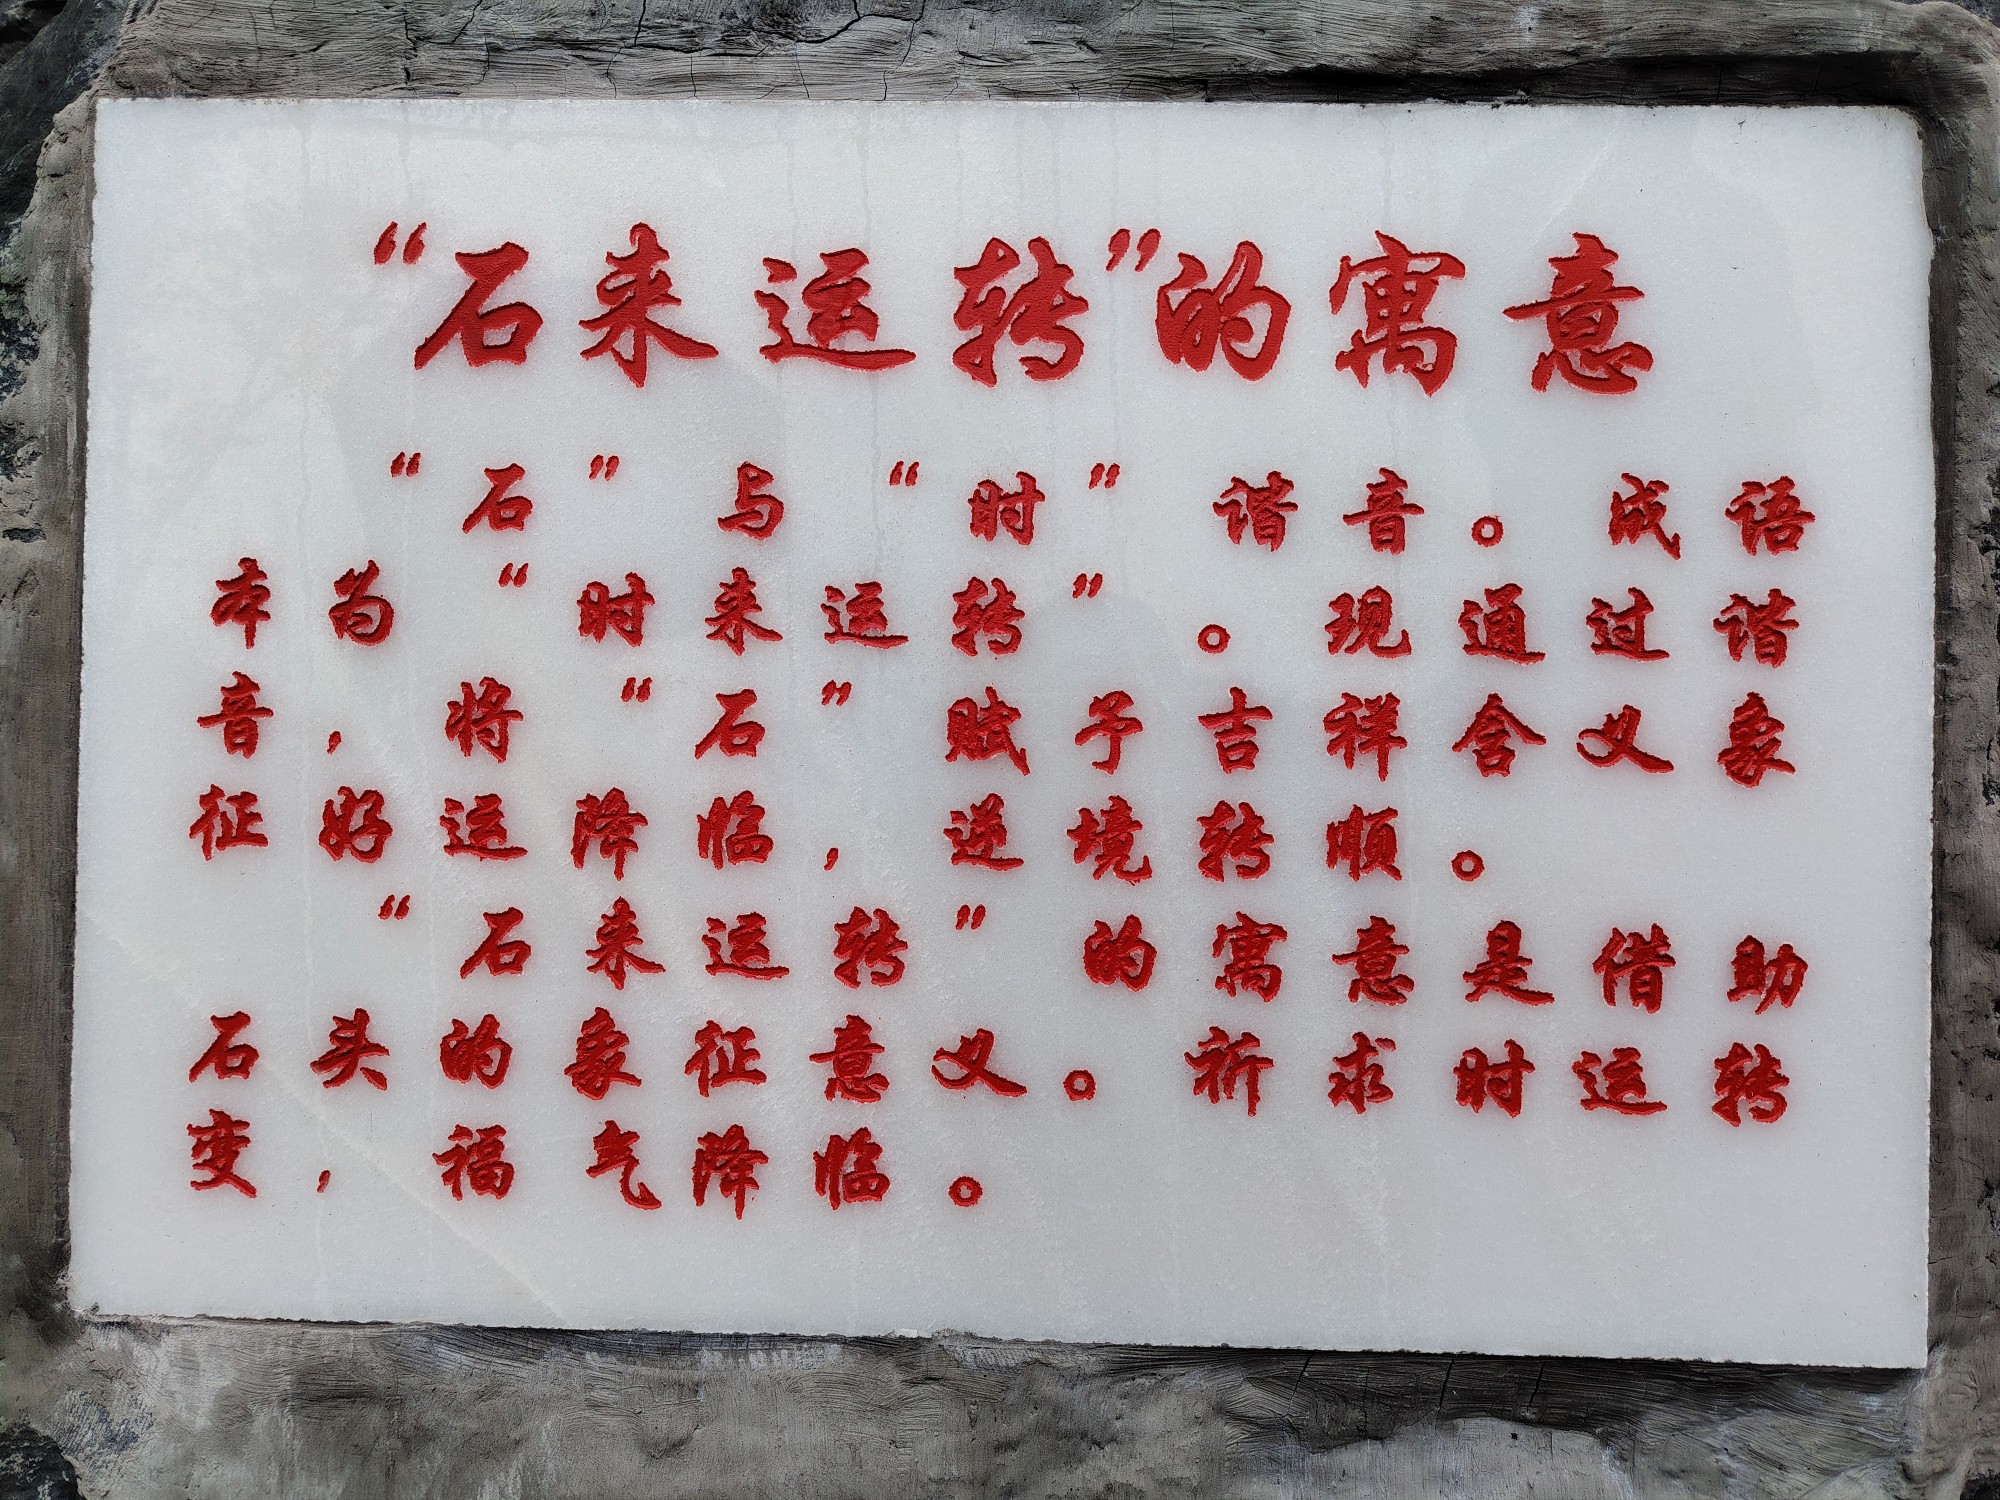 “石来运转”的寓意
“石”与“时”谐音。成语
本为“时来运转”。现通过谐
音,将“石”赋予吉祥含义象
征好运降临,逆境转顺。
“石来运转”的寓意是借助
石头的象征意义。祈求时运转
变,福气降临。